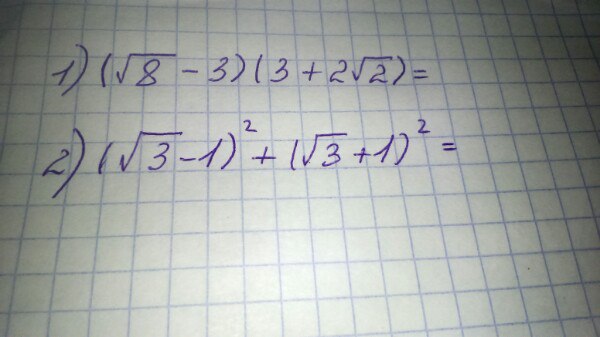 1) (√8 - 3)(3 + 2√2) =
2) (√3 - 1)² + (√3 + 1)² =